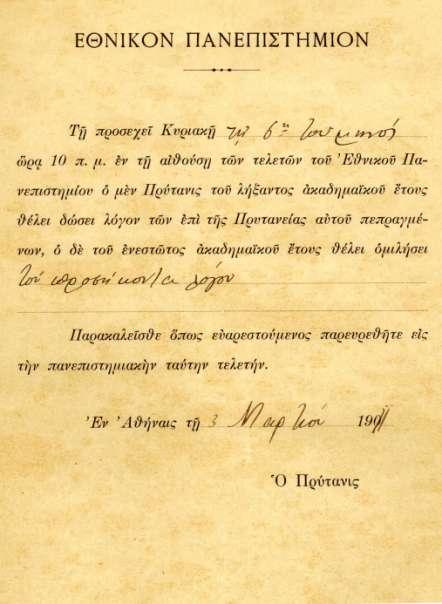 ΕΘΝΙΚΟΝ ΠΑΝΕΠΙΣΤΗΜΙΟΝ
Τῇ προσεχεῖ Κυριακῇ τῇ 6ῃ τοῦ μηνός
ὥρᾳ 10 π. μ. ἐν τῇ αἰθούσῃ τῶν τελετῶν τοῦ Ἐθνικοῦ Πα-
νεπιστημίου ὁ μὲν Πρύτανις τοῦ λήξαντος ἀκαδημαϊκοῦ ἔτους
θέλει δώσει λόγον τῶν ἐπὶ τῆς Πρυτανείας αὐτοῦ πεπραγμέ-
νων, ὁ δὲ τοῦ ἐνεστῶτος ἀκαδημαϊκοῦ ἔτους θέλει ὁμιλήσει
τὸν προσήκοντα λόγον
Παρακαλεῖσθε ὅπως εὐαρεστούμενος παρευρεθῆτε εἰς
τὴν πανεπιστημιακὴν ταύτην τελετήν.
Ἐν Ἀθήναις τῇ 3 Μαρτίου 1911
Ὁ Πρύτανις